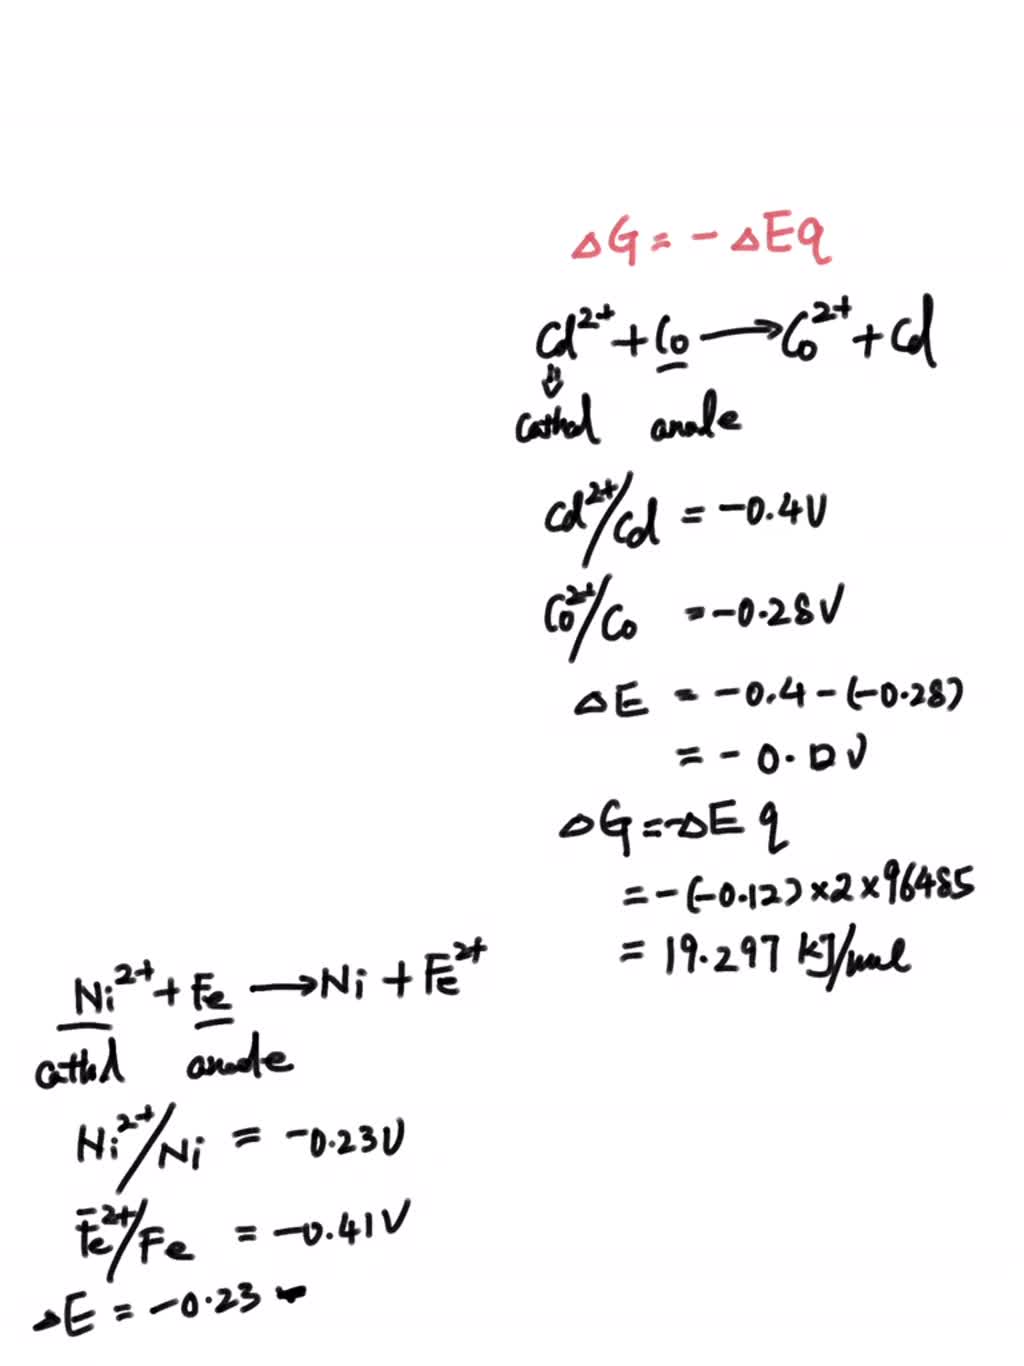 ΔG = - ΔEq
Cd²⁺ + Co → Co²⁺ + Cd
⇓
cathod anode
Cd²⁺/Cd = -0.4V
Co²⁺/Co = -0.28V
ΔE = -0.4 - (-0.28)
= -0.12V
ΔG = -ΔE q
= -(-0.12) × 2 × 96485
= 19.297 kJ/mol
Ni²⁺ + Fe → Ni + Fe²⁺
cathd anode
Ni²⁺/Ni = -0.23V
Fe²⁺/Fe = -0.41V
ΔE = -0.23 -